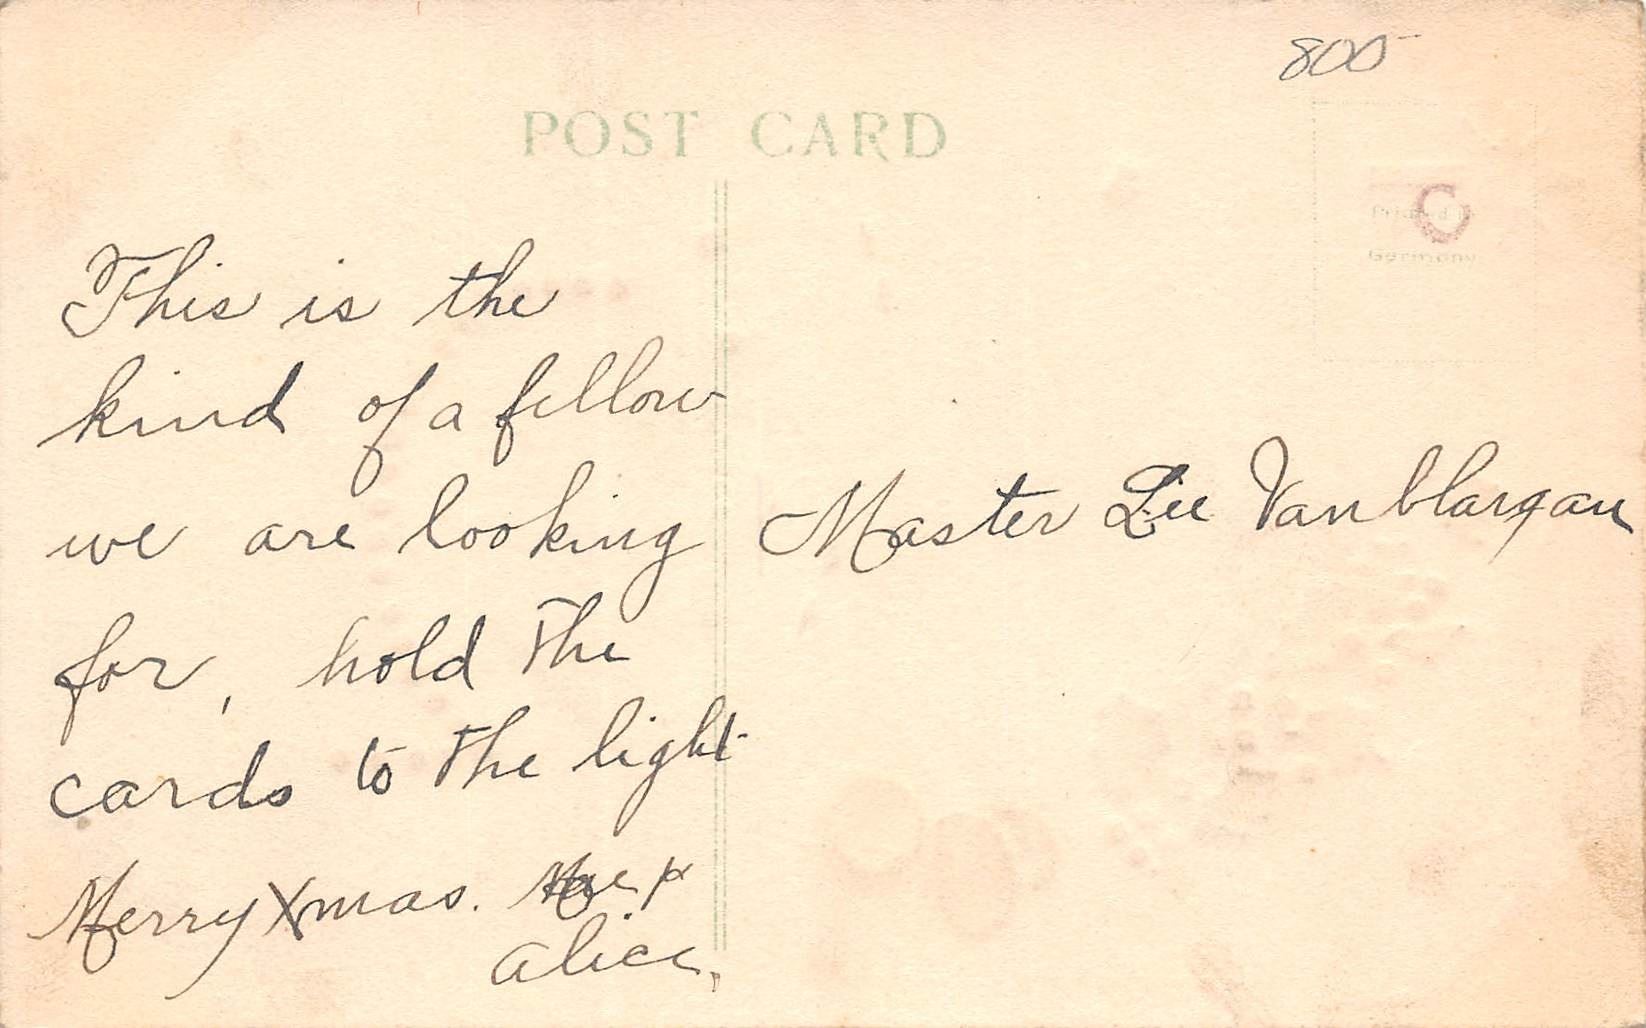 800
POST CARD
Printed in
Germany
This is the
kind of a fellow
we are looking
for, hold the
cards to the light
Merry Xmas. &
Alice.
Master Lee Vanblargan